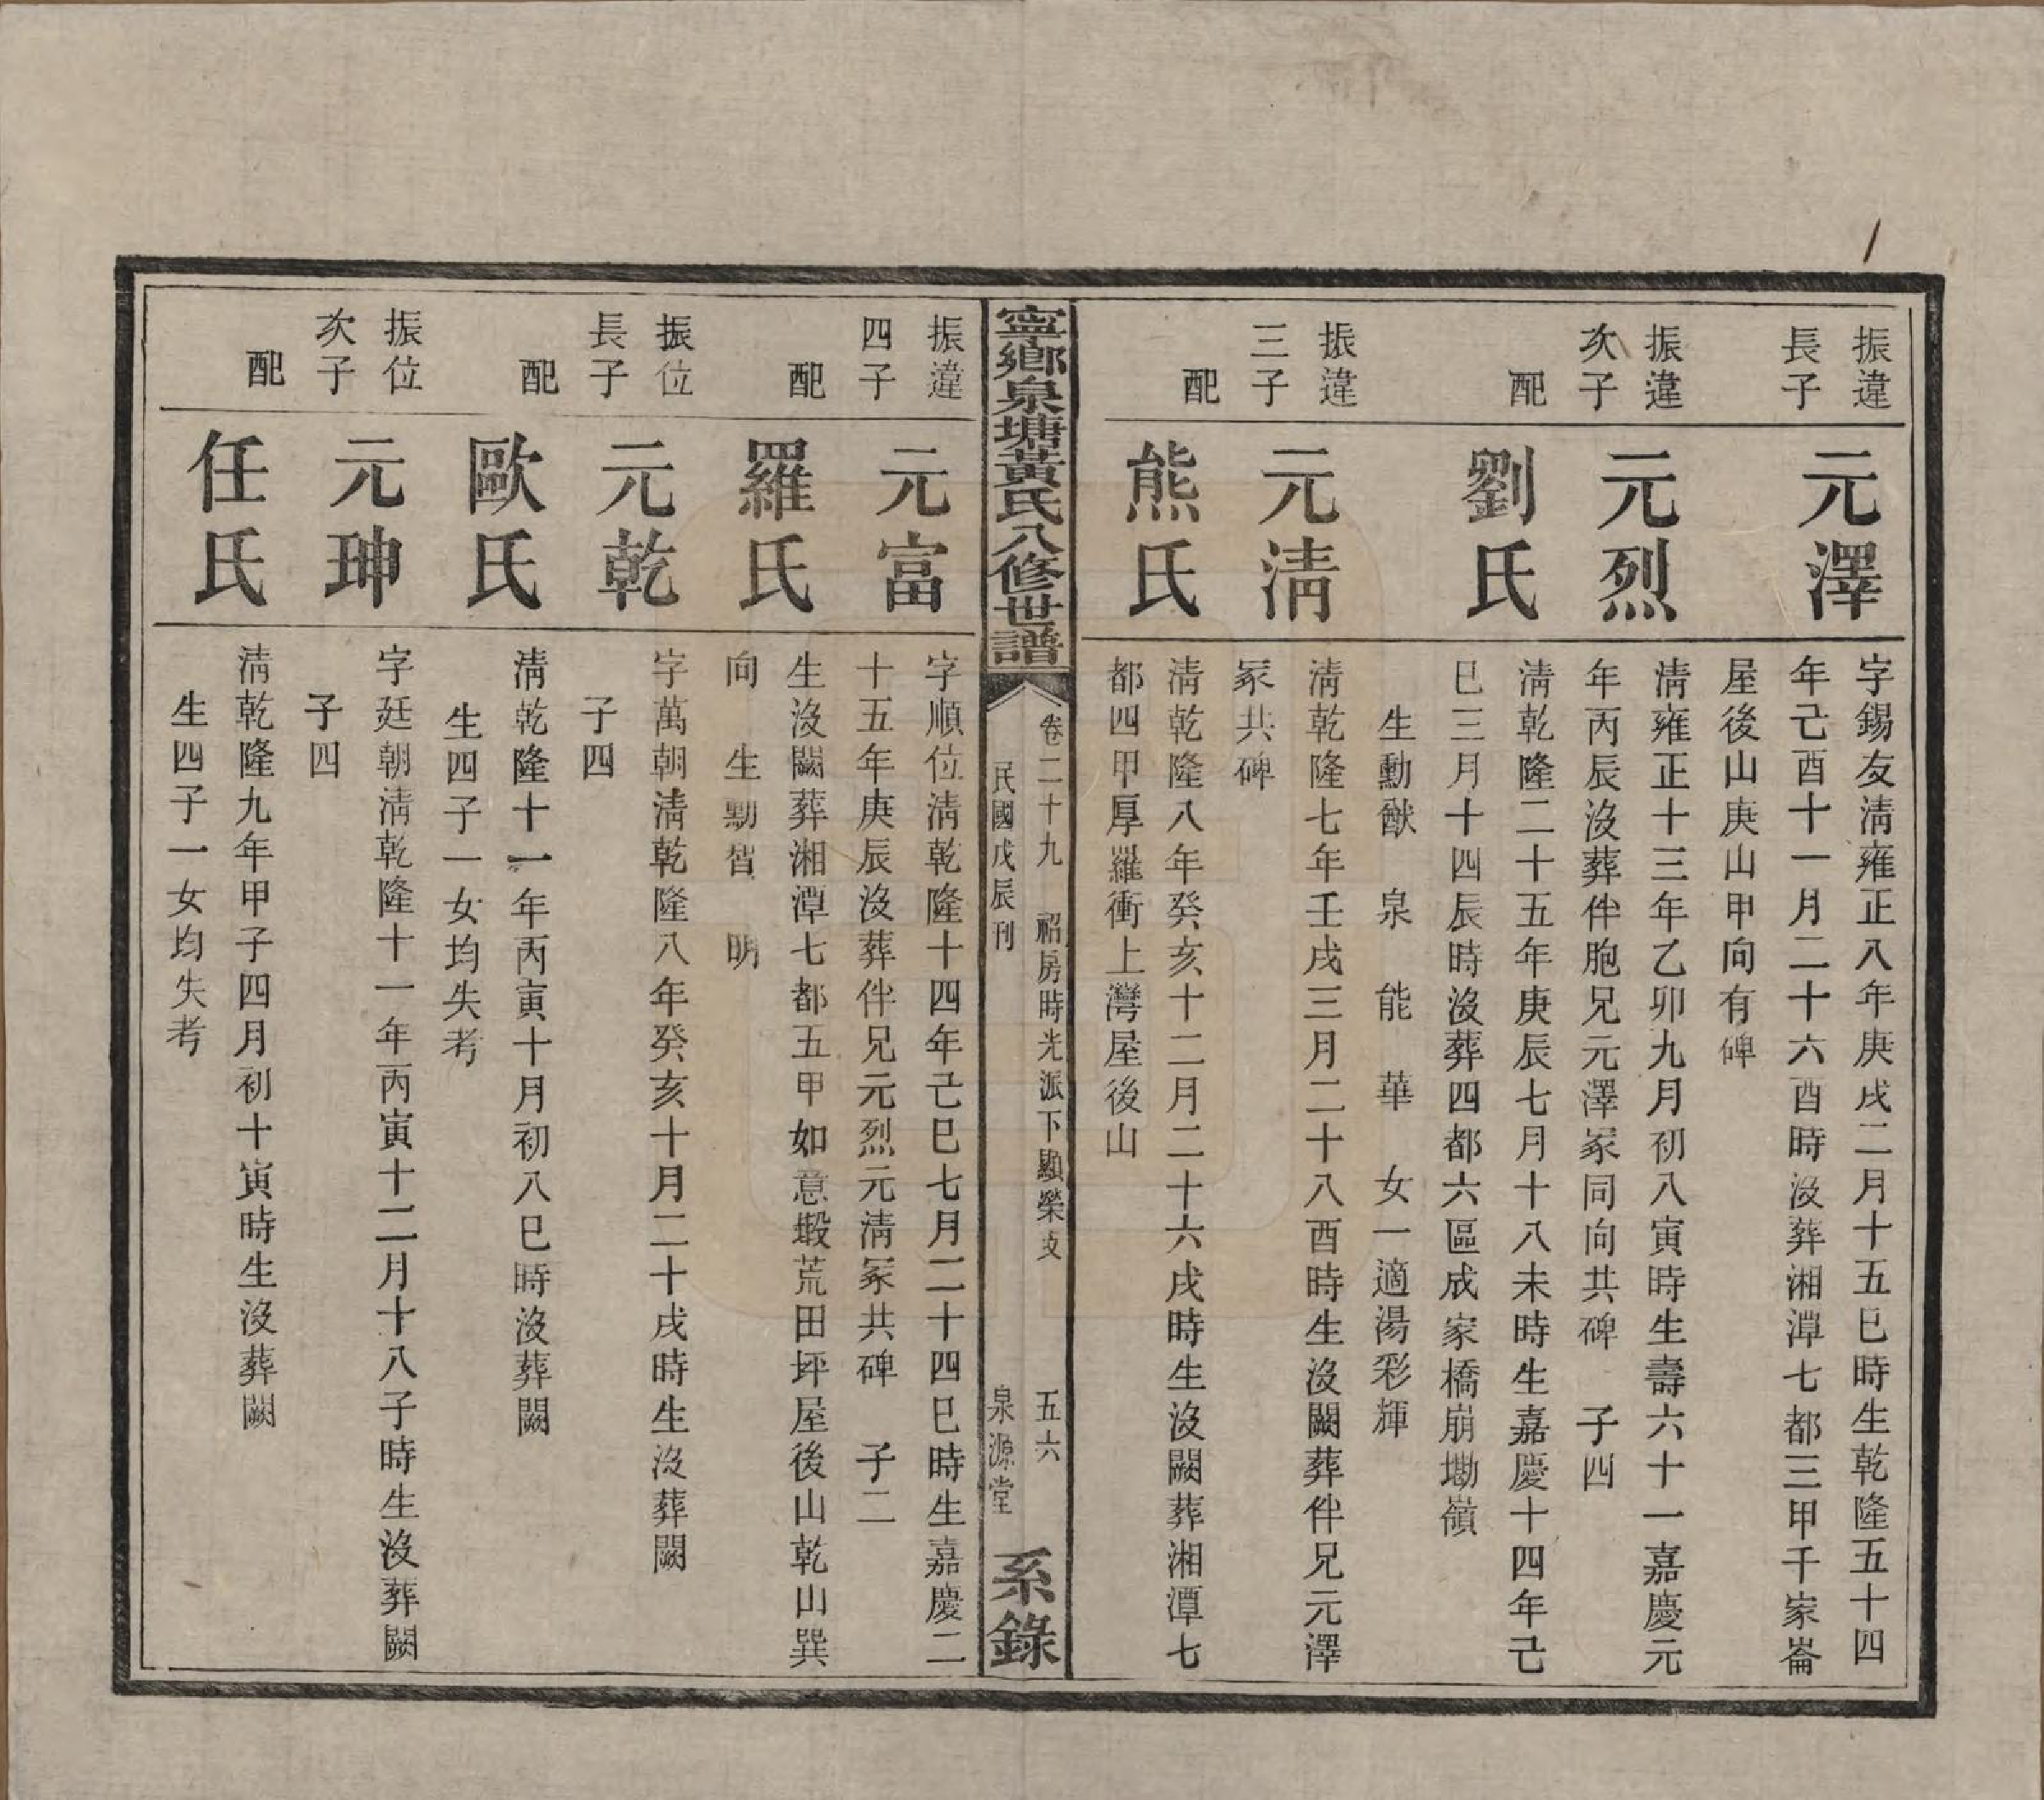 振違
長子
元澤
字錫友淸雍正八年庚戌二月十五巳時生乾隆五十四
年己酉十一月二十六酉時沒葬湘潭七都三甲千家崙
屋後山庚山甲向有碑
振違
次子
元烈
淸雍正十三年乙卯九月初八寅時生壽六十一嘉慶元
年丙辰沒葬伴胞兄元澤冢同向共碑 子四
配
劉氏
淸乾隆二十五年庚辰七月十八未時生嘉慶十四年己
巳三月十四辰時沒葬四都六區成家橋崩墈嶺
生勳猷 泉 能 華 女一適湯彩輝
振違
三子
元淸
淸乾隆七年壬戌三月二十八酉時生沒闕葬伴兄元澤
冢共碑
配
熊氏
淸乾隆八年癸亥十二月二十六戌時生沒闕葬湘潭七
都四甲厚羅衝上灣屋後山
寧鄉泉塘黃氏八修世譜
卷二十九 祒房時光派下顯榮支 五六
民國戊辰刊 泉源堂
系錄
振違
四子
元富
字順位淸乾隆十四年己巳七月二十四巳時生嘉慶二
十五年庚辰沒葬伴兄元烈元淸冢共碑 子二
配
羅氏
生沒闕葬湘潭七都五甲如意塅荒田坪屋後山乾山巽
向 生勳智 明
振位
長子
元乾
字萬朝淸乾隆八年癸亥十月二十戌時生沒葬闕
子四
配
歐氏
淸乾隆十一年丙寅十月初八巳時沒葬闕
生四子一女均失考
振位
次子
元珅
字廷朝淸乾隆十一年丙寅十二月十八子時生沒葬闕
子四
配
任氏
淸乾隆九年甲子四月初十寅時生沒葬闕
生四子一女均失考